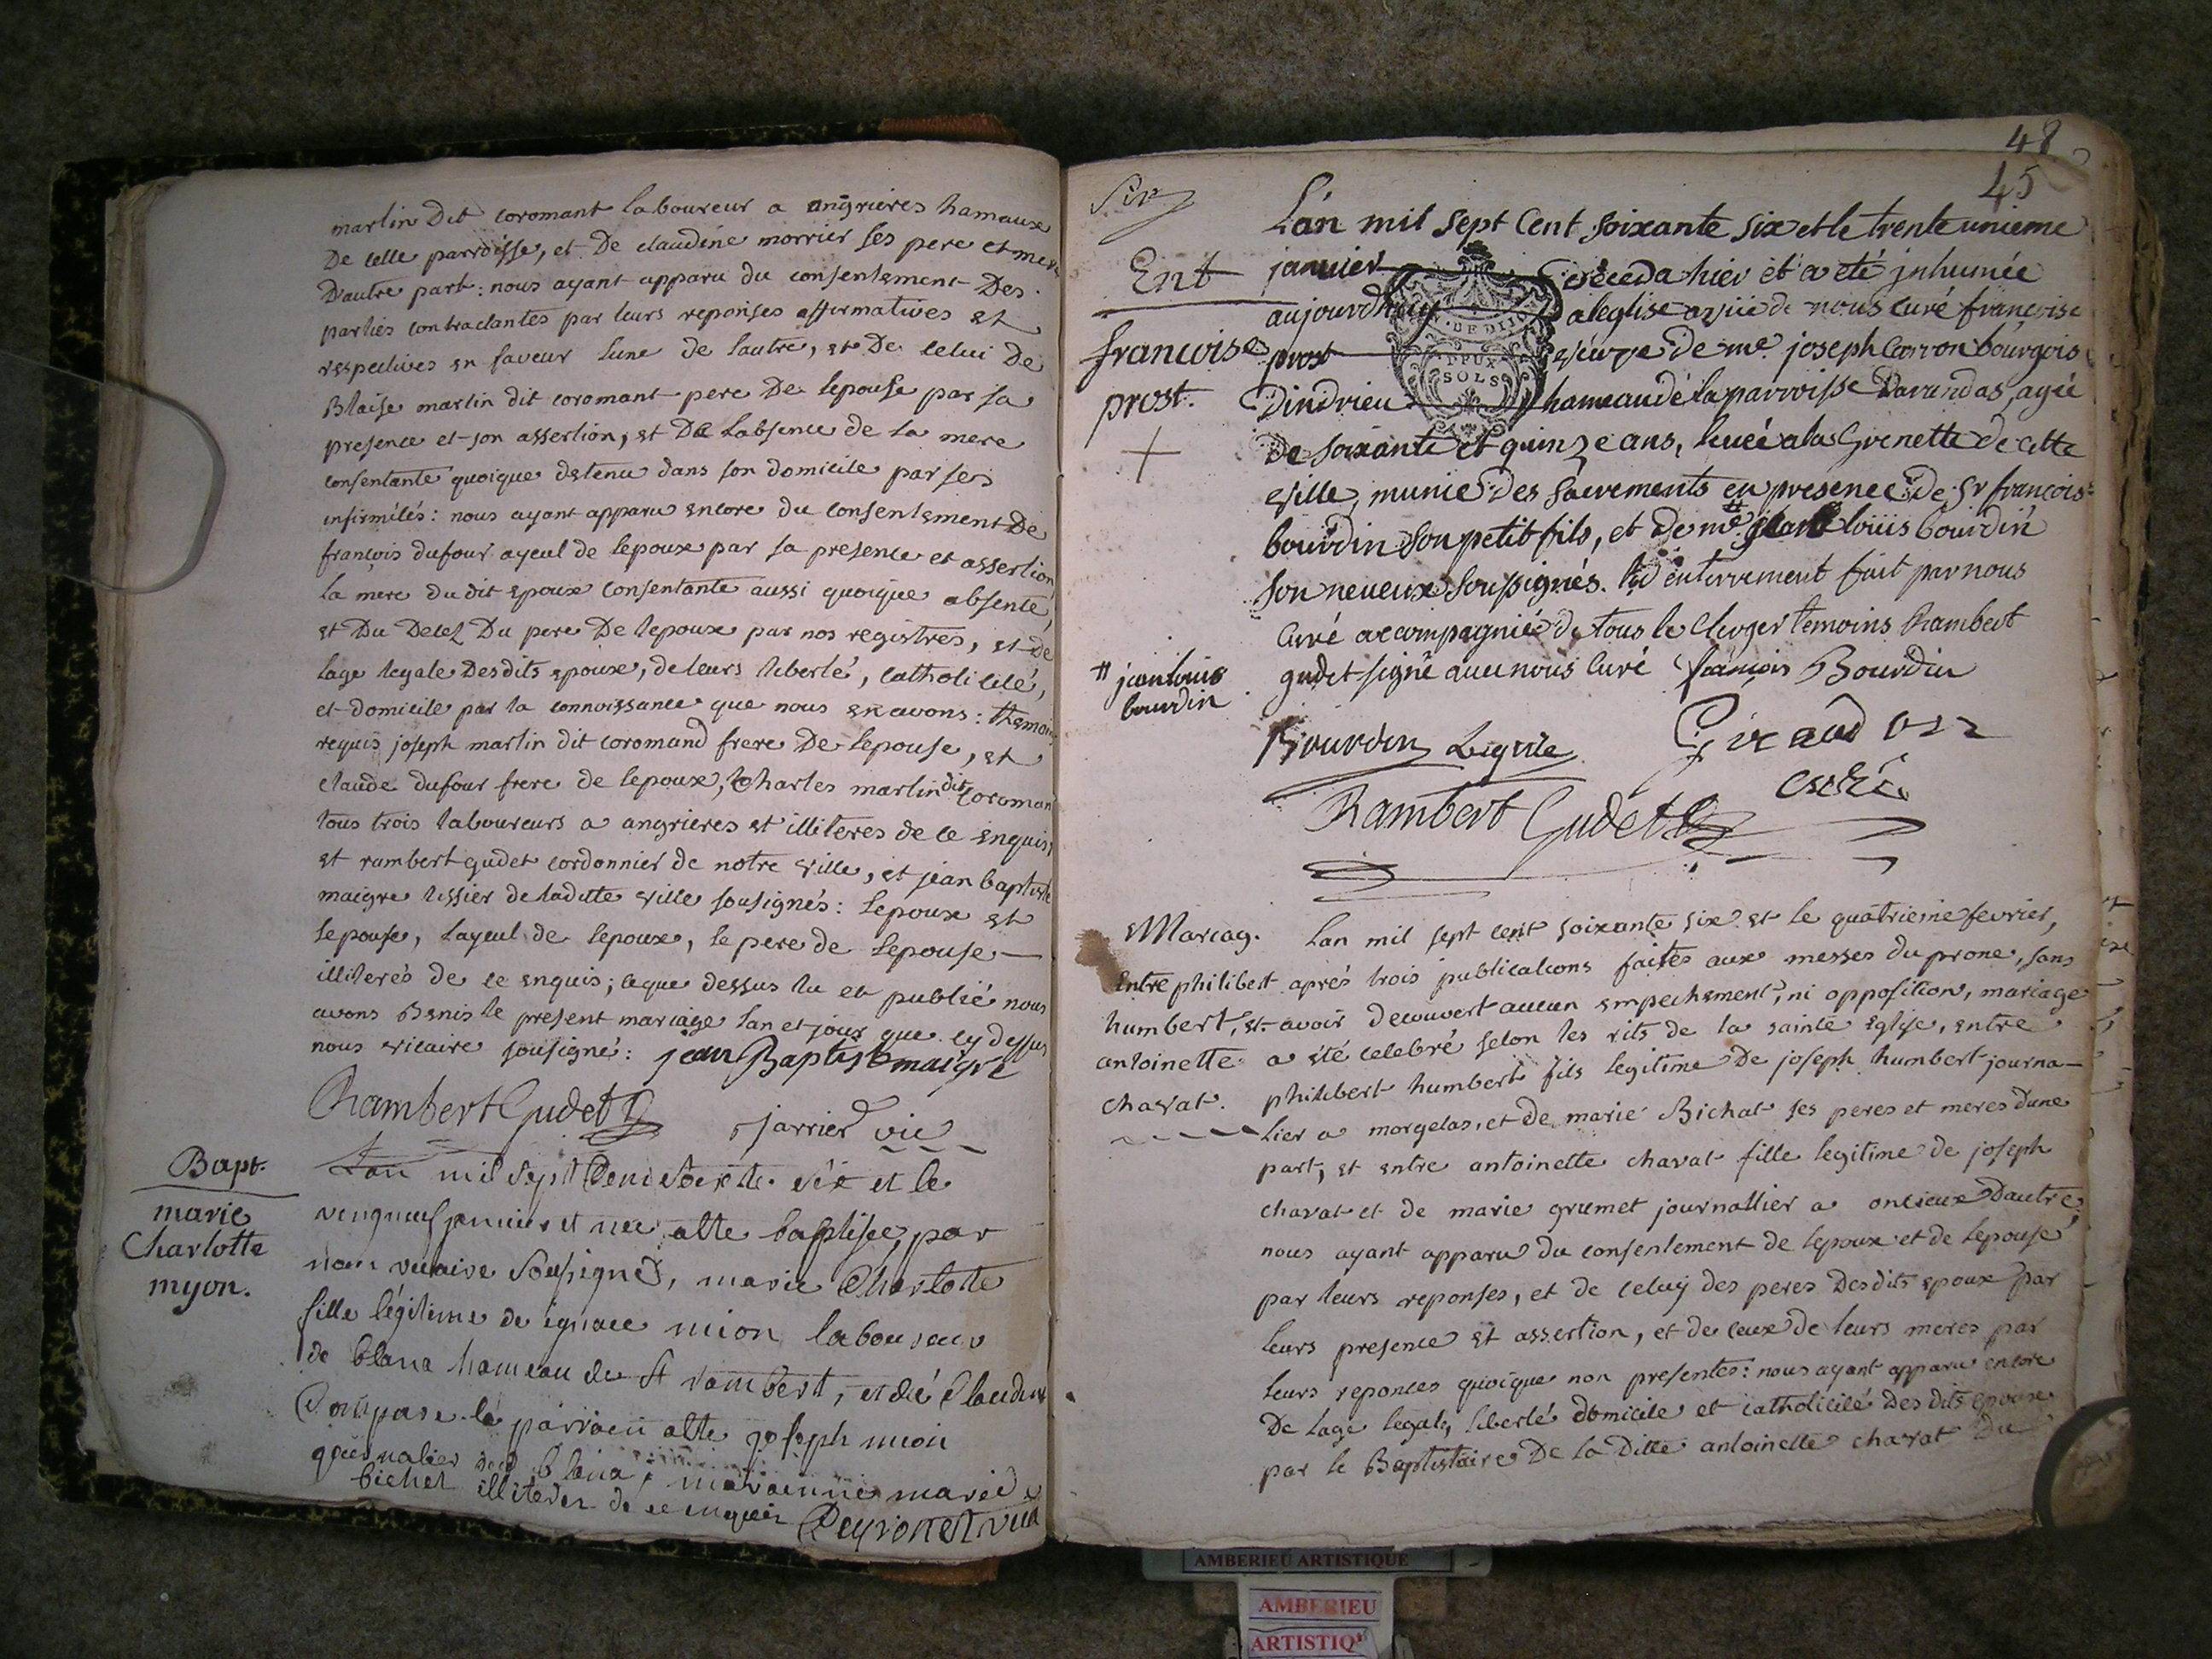 martin Dit coromant laboureur a angrieres hamaux
De cette parroisse, et De claudine morrier ses pere et mere
D'autre part: nous ayant apparu du consentement Des
parties contractantes par leurs reponses affirmatives et
respectives en faveur lune de lautre, et De celui De
Blaise martin dit coromant pere De lepouse par sa
presence et son assertion, et De Labsence de la mere
consentante quoique detenue dans son domicile par ses
infirmités: nous ayant apparu encore du consentement De
françois dufour ayeul de lepoux par sa presence et assertion
la mere du dit epoux consentante aussi quoique absente,
et Du Decez Du pere De lepoux par nos registres, et de
lage legale Desdits epoux, de leurs liberté, catholicité,
et domicile par la connoissance que nous en avons: themoins
requis joseph martin dit coromand frere De lepouse, et
claude dufour frere de lepoux, Charles martin dit coroman
tous trois laboureurs a angrieres et illiteres de ce enquis,
et rambert gudet cordonnier de notre ville, et jean baptiste
maigre tissier de laditte ville sousignés: lepoux et
lepouse, layeul de lepoux, le pere de lepouse
illiterés de ce enquis; ceque dessus lu et publié nous
avons Benis le present mariage lan et jour que cy dessus
nous vicaire sousigné: jean Baptiste maigre
Rambert Gudet jarrier vic
Bapt. Lan mil sept Cent Soixte six et le
vingneuf janvier et nee a ette baptisee, par
marie
Charlotte
myon.
nous vicaire Soussigné, marie Charlotte
fille légitime de ignace mion laboureur
de blana hameau de St rambert, et de Claudine
le parrain a ete joseph mion
journalier de blana, maraine marie
bichet illiteres de ce enquis Peyronet vic
48
45
Lán mil sept Cent soixante six et le trente unieme
Ent janvier Deceda hier et a eté jnhumée
aujourdhuy a leglise de nous curé francoise
francoise prost veuve de me. joseph Carron bourgois
prost. Dindrieu hameau de la parroisse Darandas, agée
DE DIJON
DEUX
SOLS
de soixante et quinze ans, a la Grenette de cette
ville, munie des sacrements en presence de Sr françois
bourdin son petit fils, et de me jean louis bourdin
son neveux soussignés. enterrement fait par nous
curé accompagnié de tous le Clerger temoins Rambert
# jean louis
bourdin
gudet signé avec nous curé françois Bourdin
Bourdin
Rambert Gudet curé
Mariag. Lan mil sept cent soixante six et le quatrieme fevrier,
Entre philibert aprés trois publications faites aux messes du prone, sans
humbert, et avoir decouvert aucun empechement, ni opposition, mariage
antoinette a été celebré selon les rits de la sainte Eglise, entre
chavat. philibert humbert fils legitime De joseph humbert journa-
lier a morgelas, et de marie Bichat ses peres et meres dune
part, et entre antoinette chavat fille legitime de joseph
chavat et de marie grumet journallier a oncieux Dautre,
nous ayant apparu du consentement de lepoux et de lepouse
par leurs reponses, et de celuy des peres Desdits epoux par
leurs presence et assertion, et de ceux de leurs meres par
leurs reponces quoique non presentes: nous ayant apparu encore
De lage legal, liberté domicile et catholicité Des dits epoux
par le Baptistaire De la Ditte antoinette chavat Du
AMBERIEU ARTISTIQUE
AMBERIEU
ARTISTIQ